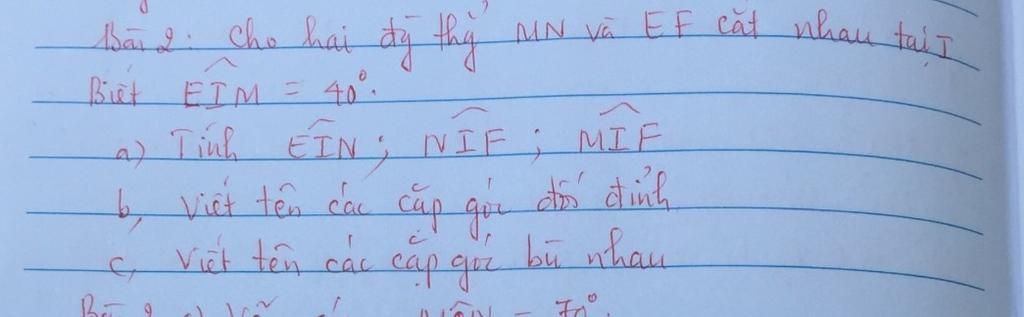 Bài 2: Cho hai đg thg MN và EF cắt nhau tại I
Biết EIM = 40°.
a) Tính EIN ; NIF ; MIF
b, Viết tên các cặp góc đối đỉnh
c, Viết tên các cặp góc bù nhau
= 70°.